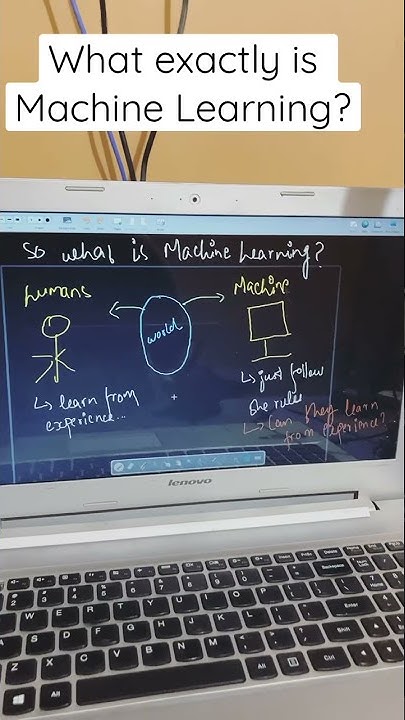 What exactly is
Machine Learning?
So what is Machine Learning?
humans
Machine
world
↳ learn from
experience...
↳ just follow
the rules
↳ Can they learn
from experience?
lenovo
Backspace
Enter
Shift
Alt
Ctrl
Alt
W E R T Y U I O P
S D F G H J K L
Z X C V B N M